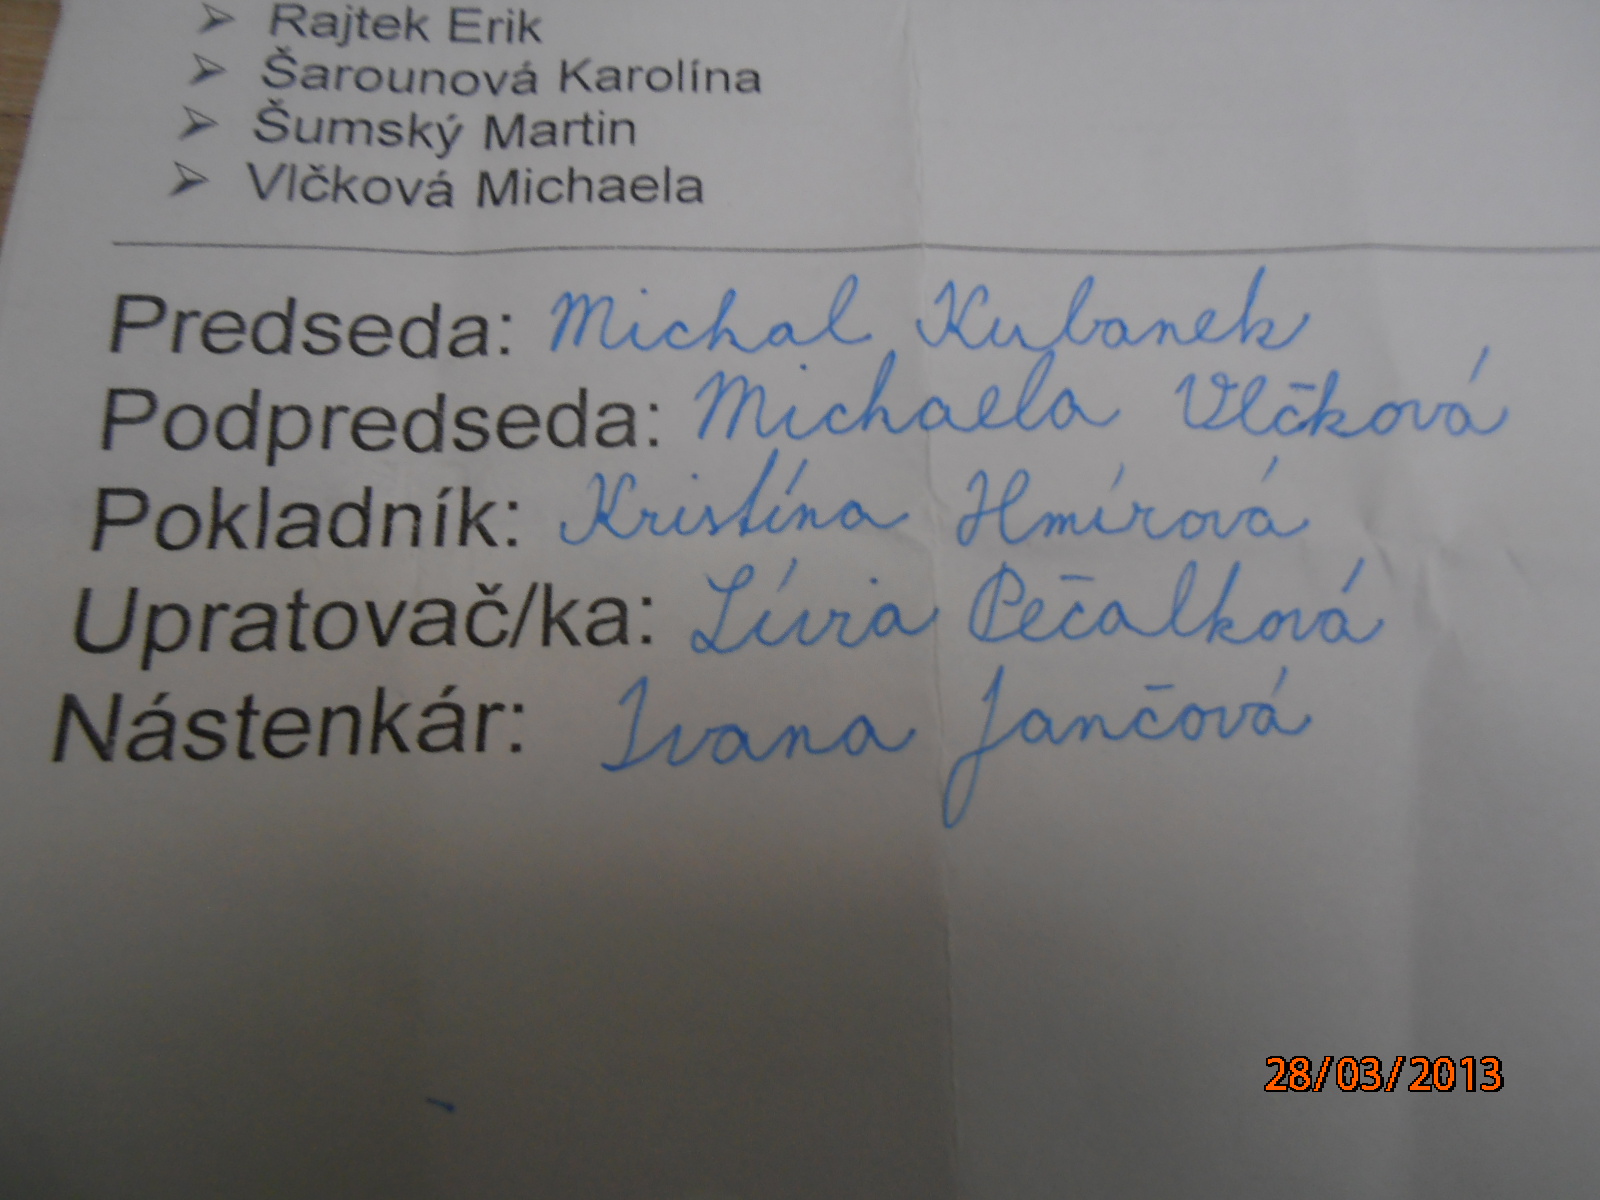 ➢ Rajtek Erik
➢ Šarounová Karolína
➢ Šumský Martin
➢ Vlčková Michaela
Predseda: Michal Kubanek
Podpredseda: Michaela Vlčková
Pokladník: Kristína Hmírová
Upratovač/ka: Lívia Pečalková
Nástenkár: Ivana Jančová
28/03/2013